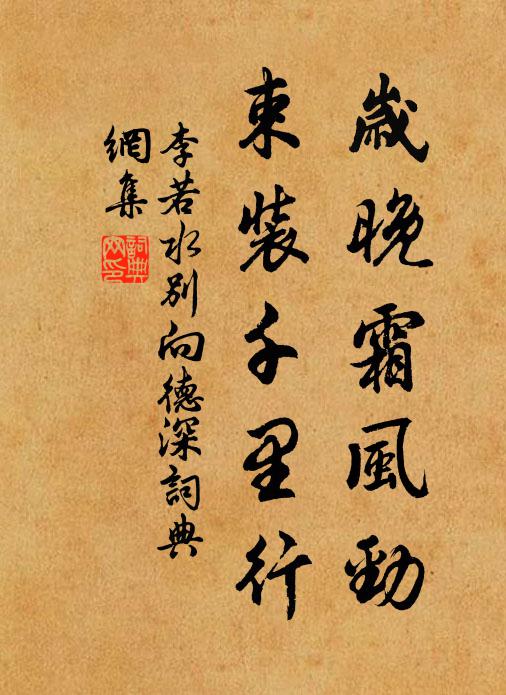 歲晚霜風勁
束裝千里行
李若水別向德深詞典
網集
詞典
网印